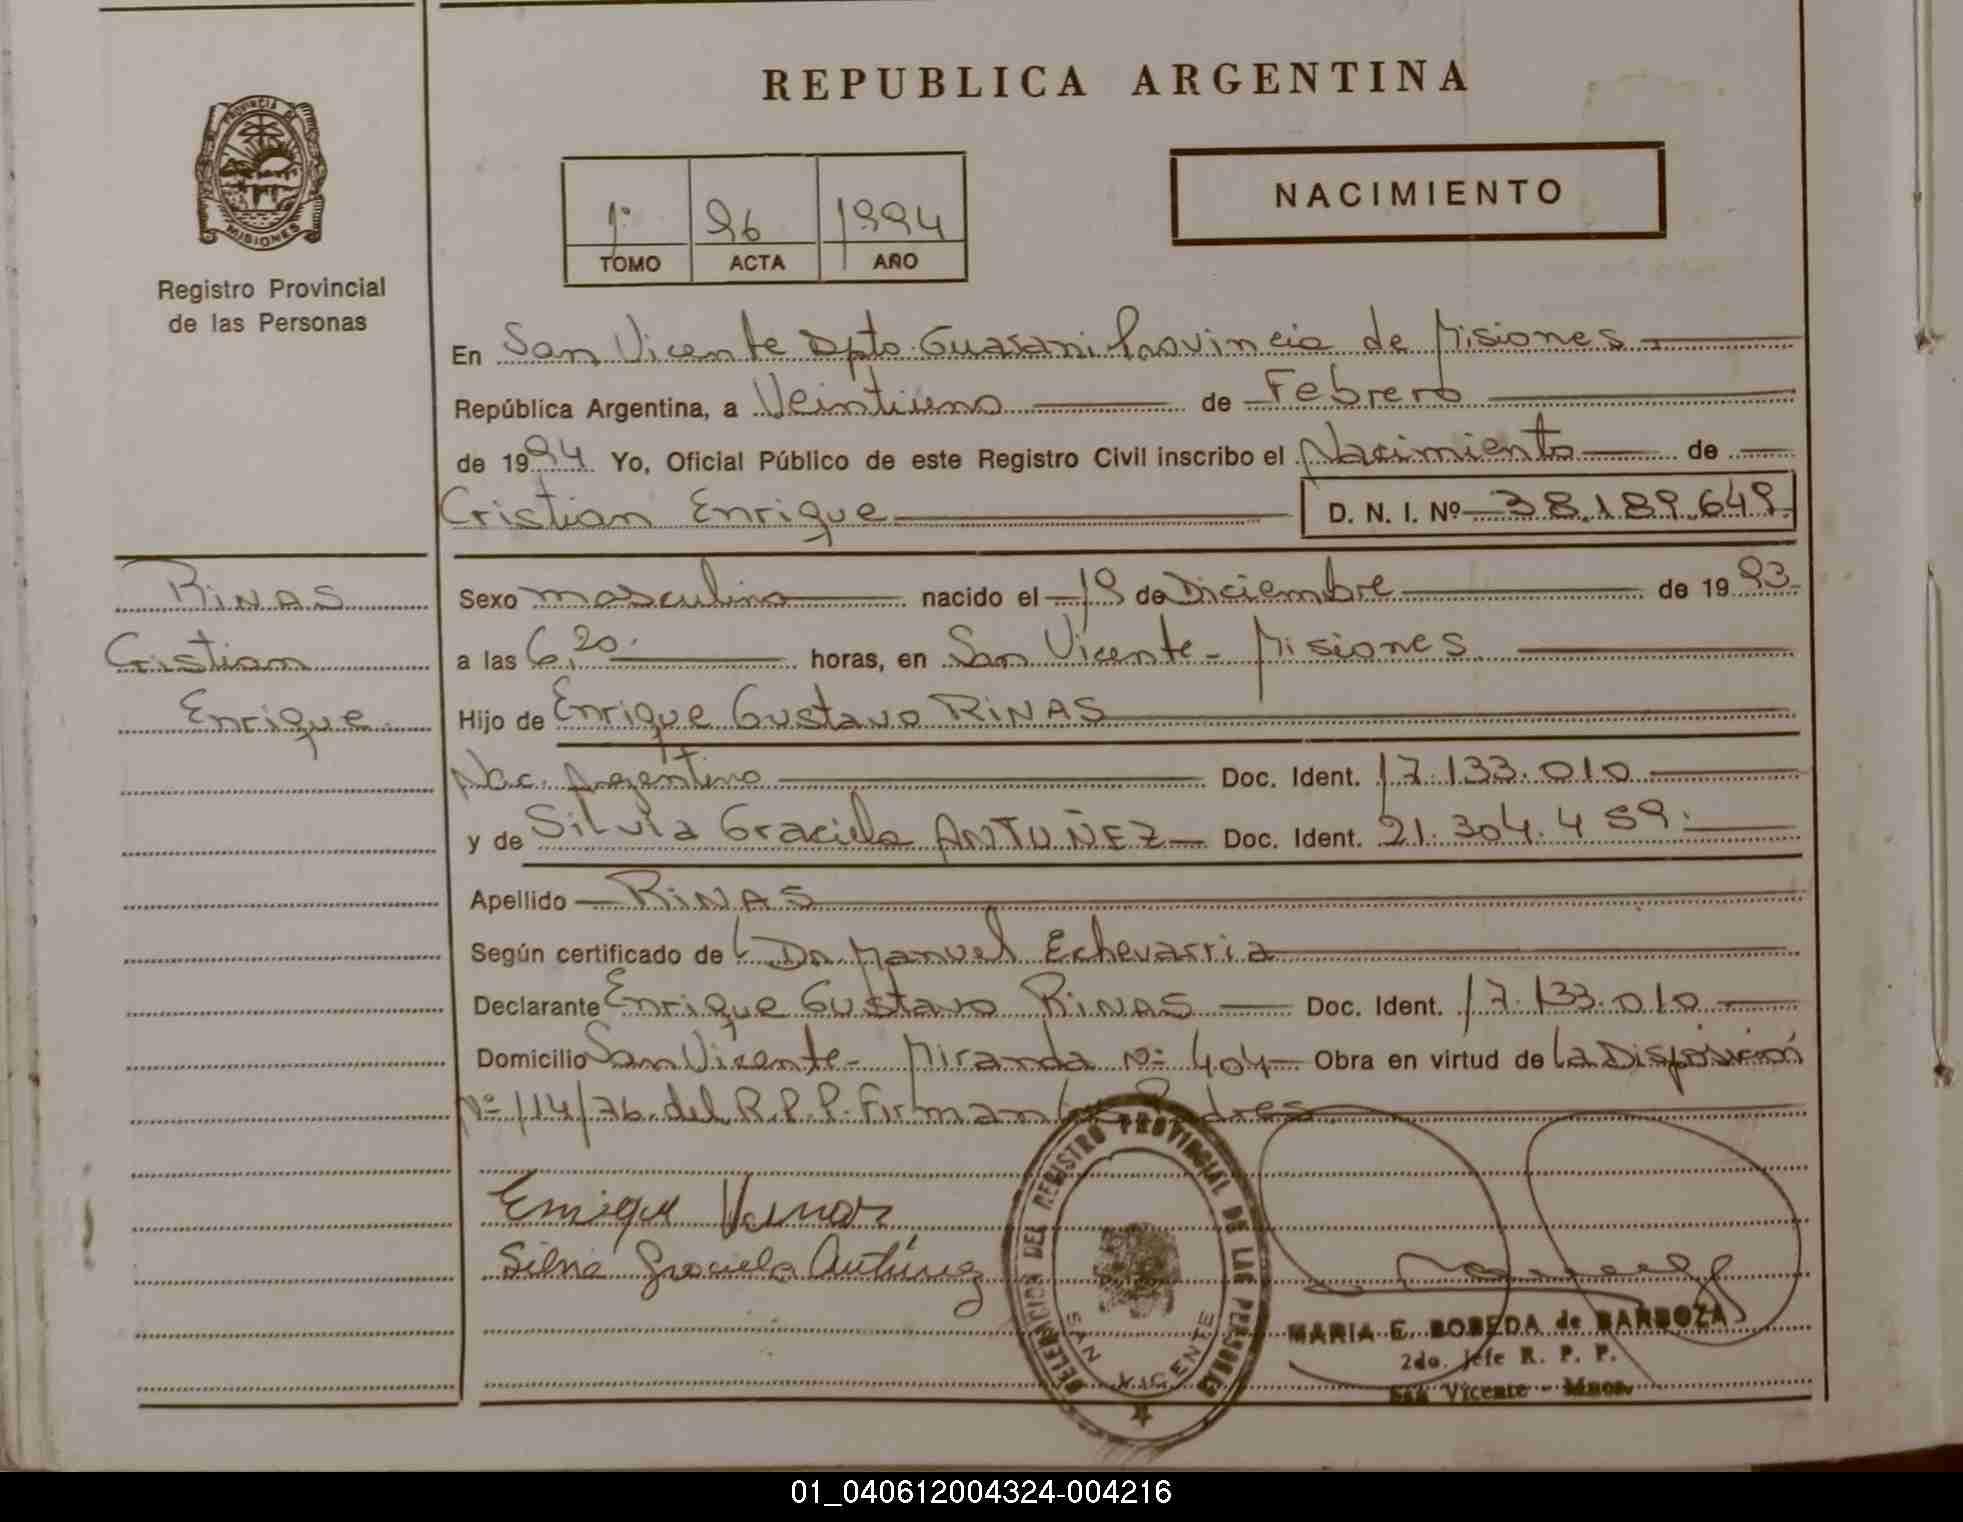 REPUBLICA ARGENTINA
PROVINCIA DE
MISIONES
Registro Provincial
de las Personas
1º 96 1994
TOMO ACTA AÑO
NACIMIENTO
En San Vicente Dpto Guarani Provincia de Misiones
República Argentina, a Veintiuno de Febrero
de 1994 Yo, Oficial Público de este Registro Civil inscribo el Nacimiento de
Cristian Enrique D. N. I. Nº 38.189.649.
RINAS
Cristian
Enrique
Sexo masculino nacido el 19 de Diciembre de 1993.
a las 6,20. horas, en San Vicente - Misiones
Hijo de Enrique Gustavo RINAS
Nac. Argentino Doc. Ident. 17.133.010
y de Silvia Graciela ANTUÑEZ Doc. Ident. 21.304.459.
Apellido RINAS
Según certificado de L Dr. Manuel Echevarria
Declarante Enrique Gustavo RINAS Doc. Ident. 17.133.010
Domicilio San Vicente - Miranda Nº 404 Obra en virtud de la Disposición
Nº 114/76 del R.P.P. Firman Padres
Silvia Graciela Antúnez
DELEGACION DEL REGISTRO PROVINCIAL DE LAS PERSONAS
SAN VICENTE
MARIA E. BOBEDA de BARBOZA
2do. Jefe R. P. P.
San Vicente - Mnes.
01_040612004324-004216